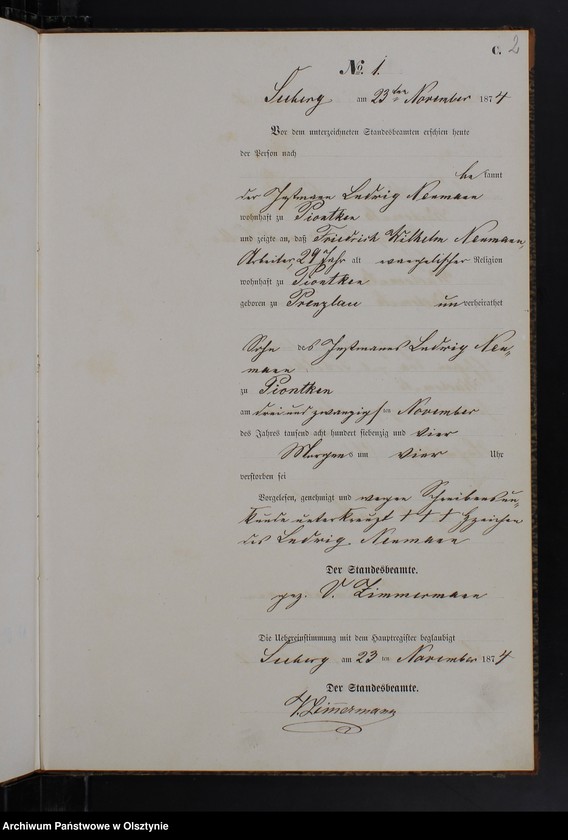 C. 2
No. 1.
Seeberg am 23ten November 1874
Vor dem unterzeichneten Standesbeamten erschien heute
der Person nach
be kannt
der Instmann Ludwig Neumann
wohnhaft zu Piontken
und zeigte an, daß Friedrich Wilhelm Neumann,
Arbeiter, 29 Jahr alt evangelischer Religion
wohnhaft zu Piontken
geboren zu Prenzlau un verheirathet
Sohn des Instmanns Ludwig Neu-
mann
zu Piontken
am drei und zwanzigsten November
des Jahres tausend acht hundert siebenzig und vier
Morgens um vier Uhr
verstorben sei
Vorgelesen, genehmigt und wegen Schreibensun-
kunde unterkreuzt + + + Hzeichen
des Ludwig Neumann
Der Standesbeamte.
gez. V. Zimmermann
Die Uebereinstimmung mit dem Hauptregister beglaubigt
Seeberg am 23 ten November 1874
Der Standesbeamte.
V. Zimmermann
Archiwum Państwowe w Olsztynie